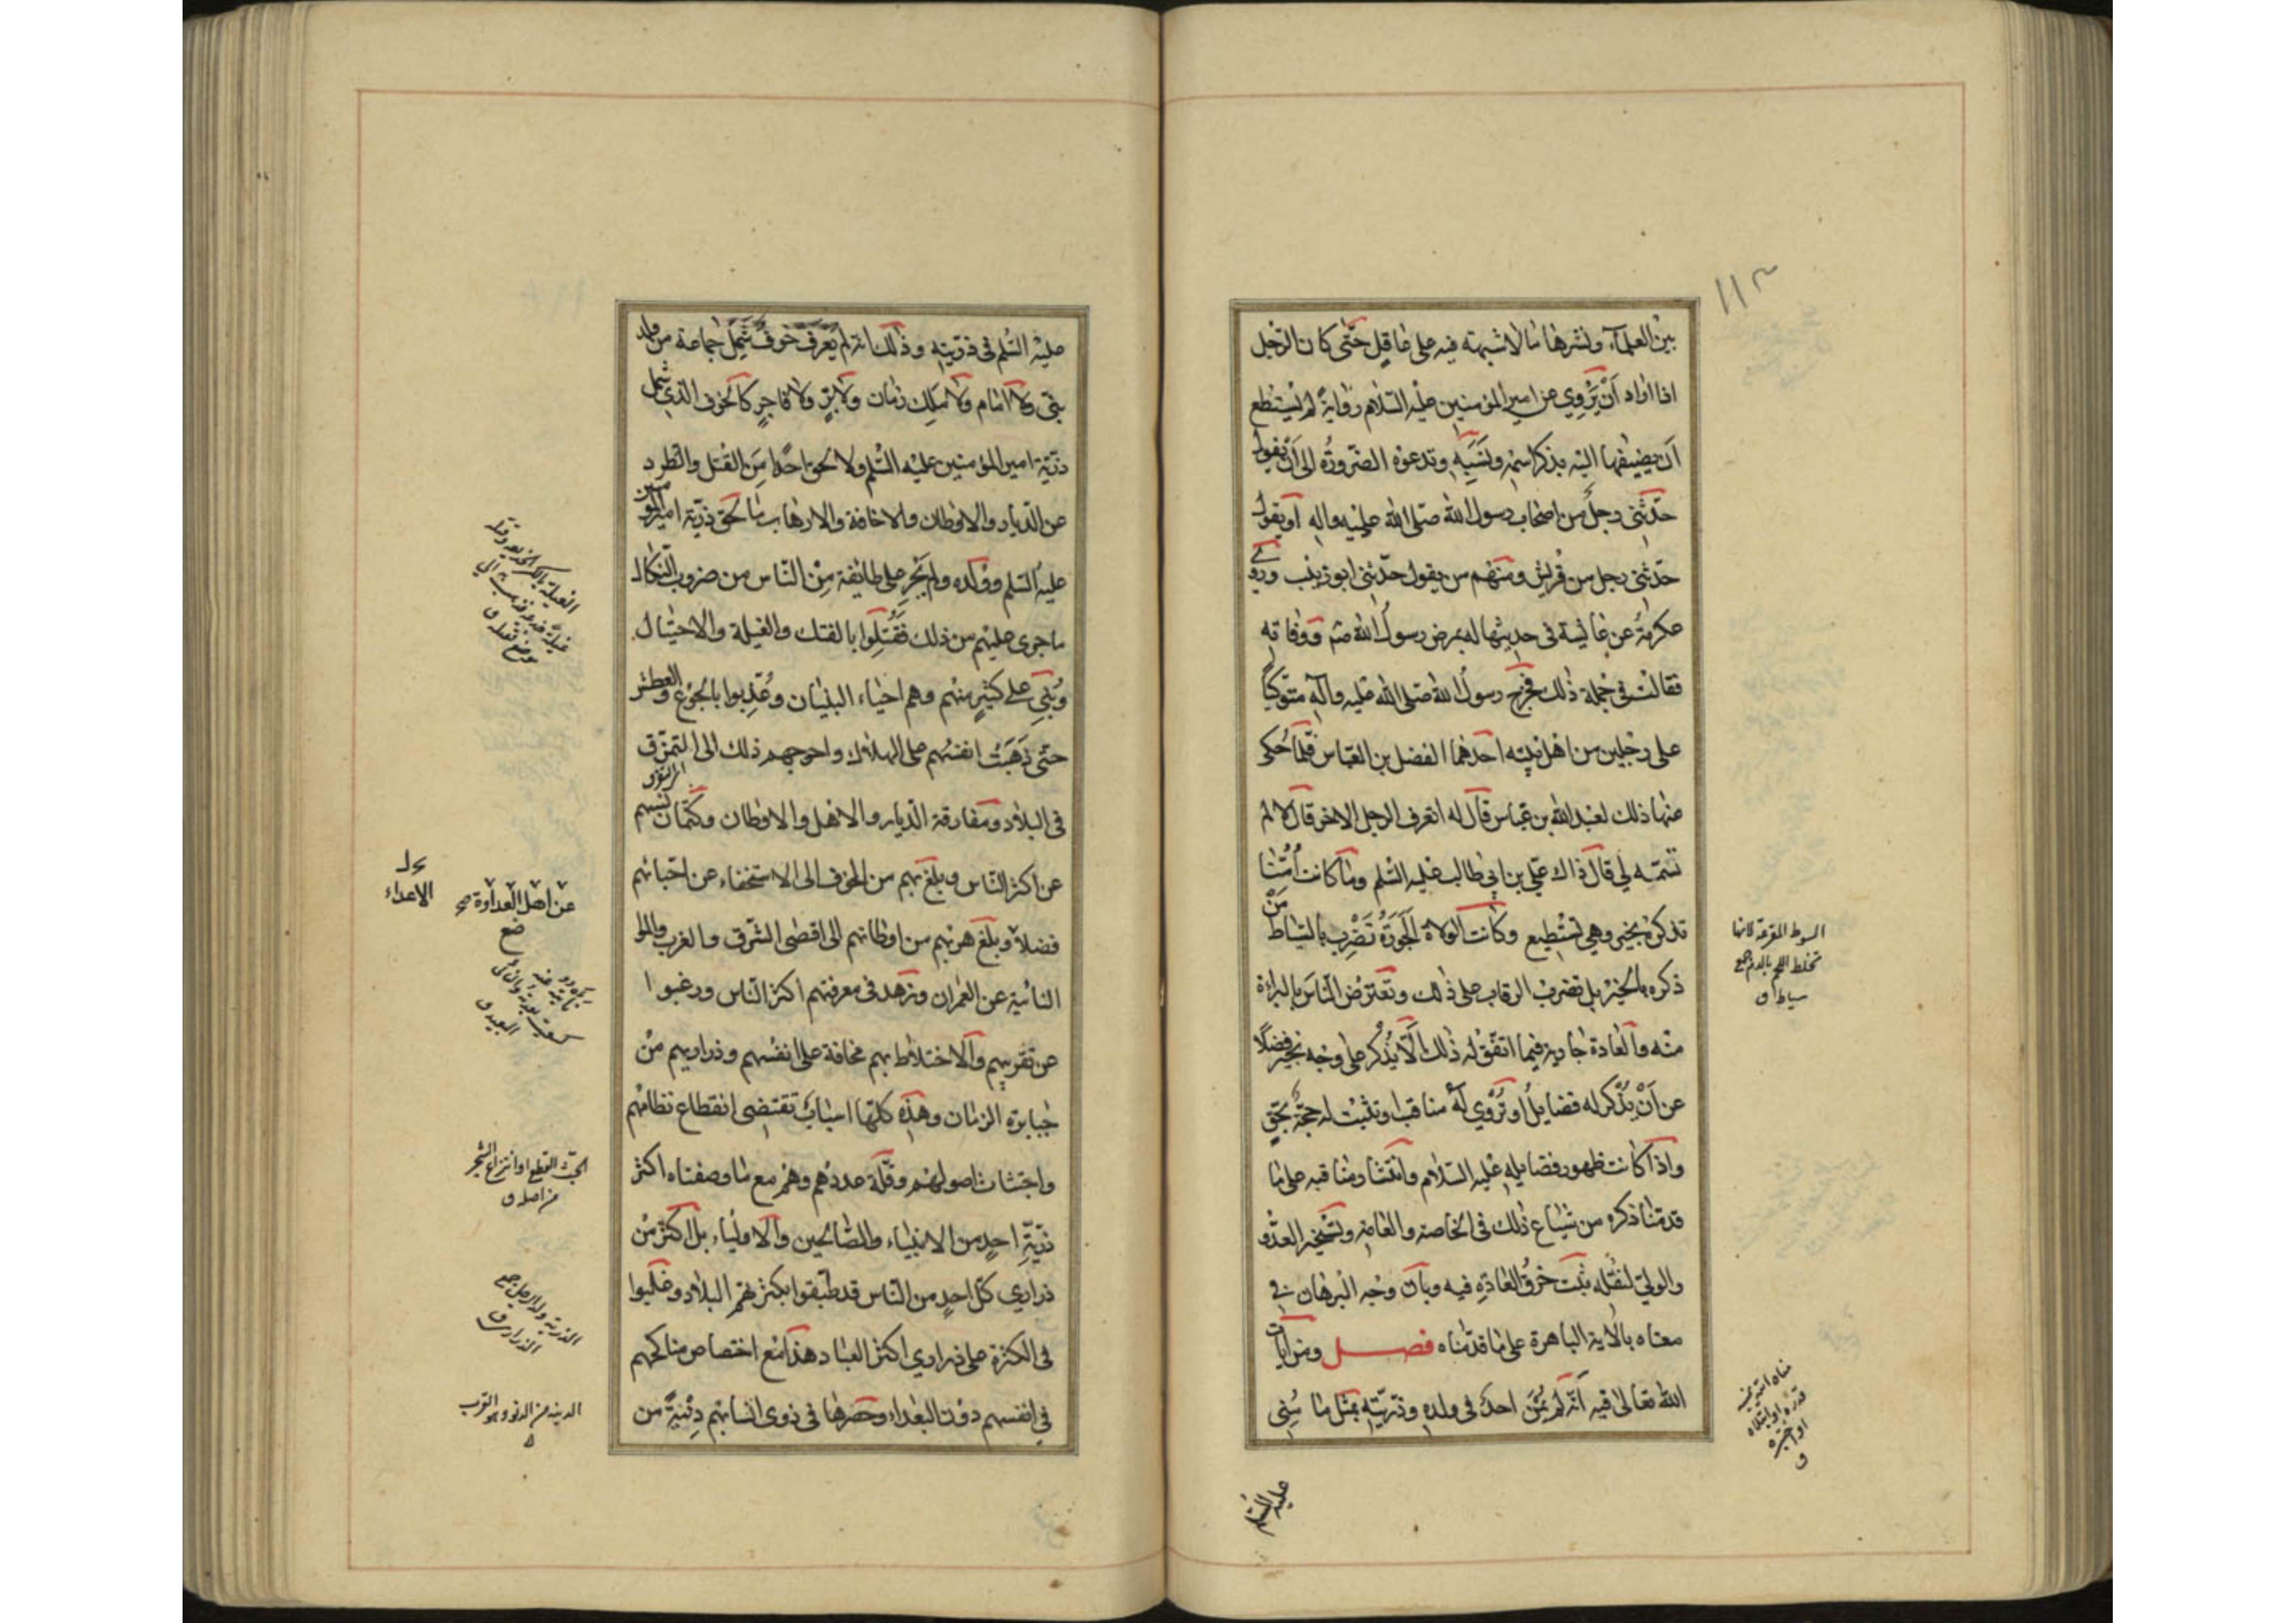 ١١٣
بين العلماء ونشرها ما لا شبهة فيه على ما قيل حتى كان الرجل
اذا اراد أن يروي عن امير المؤمنين عليه السلام رواية لم يستطع
أن يضيفها اليه بذكر اسمه ونسبه وتدعوه الضرورة الى أن يقول
حدثني رجل من اصحاب رسول الله صلى الله عليه واله او يقول
حدثني رجل من قريش ومنهم من يقول حدثني ابو زينب وروى
عكرمة عن عايشة في حديثها له بمرض رسول الله صلم ووفاته
فقالت في جملة ذلك فخرج رسول الله صلى الله عليه واله متوكيا
على رجلين من اهل بيته احدهما الفضل بن العباس فلما حكى
عنها ذلك لعبد الله بن عباس قال له اتعرف الرجل الاخر قال لا لم
تسمه لي قال ذاك علي بن ابي طالب عليه السلم وما كانت أمنا
تذكره بخير وهي تستطيع وكانت الولاة الجورة تضرب بالسياط من
ذكره بالخير بل تضرب الرقاب على ذلك وتعترض الناس بالبراءة
منه والعادة جارية فيما اتفق له ذلك الا يذكر على وجه بخير فضلا
عن أن يذكر له فضايل او تروي له مناقب او تثبت له حجة بحق
واذا كانت ظهور فضايله عليه السلام وانتشار مناقبه على ما
قدمنا ذكره من شياع ذلك في الخاصة والعامة وتسخير العدو
والولي لنقله ثبت خرق العادة فيه وبان وجه البرهان في
معناه بالاية الباهرة على ما قدمناه فصل ومن ايات
الله تعالى فيه أنه لم يمن احد في ولده وذريته بمثل ما مني
عليه السلم
السوط المقرعة لانها
تخلط اللحم بالدم جمع
سياط ق
عليه السلم في ذريته وذلك انه لم يعرف خوف شمل جماعة من ولد
نبي ولا امام ولا ملك زمان ولا بر ولا فاجر كالخوف الذي شمل
ذرية امير المؤمنين عليه السلم ولا لحق احدا من القتل والطرد
عن الديار والاوطان والاخافة والارهاب ما لحق ذرية امير المؤمنين
عليه السلم وولده ولم يجر على طايفة من الناس من ضروب النكال
ما جرى عليهم من ذلك فقتلوا بالفتك والغيلة والاحتيال
وبني على كثير منهم وهم احياء البنيان وعذبوا بالجوع والعطش
حتى ذهبت انفسهم على الهلاك واحوجهم ذلك الى التمزق
في البلاد ومفارقة الديار والاهل والاوطان وكتمان نسبهم
عن اكثر الناس وبلغ بهم من الخوف الى الاستخفاء عن احبائهم
فضلا وبلغ هربهم من اوطانهم الى اقصى الشرق والغرب والمواضع
النائية عن العمران وزهد في معرفتهم اكثر الناس ورغبوا
عن تقريبهم والاختلاط بهم مخافة على انفسهم وذراريهم من
جبابرة الزمان وهذه كلها اسباب تقتضي انقطاع نظامهم
واجتثاث اصولهم وقلة عددهم وهم مع ما وصفناه اكثر
ذرية احد من الانبياء والصالحين والاولياء بل اكثر من
ذراري كل احد من الناس قد طبقوا بكثرتهم البلاد وغلبوا
في الكثرة على ذراري اكثر العباد هذا مع اختصاص مناكحهم
في انفسهم دون البعداء وحصرها في ذوي انسابهم دنية من
عن اهل العداوة صح
الاعداء
الجث القطع او انتزاع الشجر
من اصله ق
الذرية ولد الرجل جمع
الذراري ق
الدنية من الدنو وهو القرب